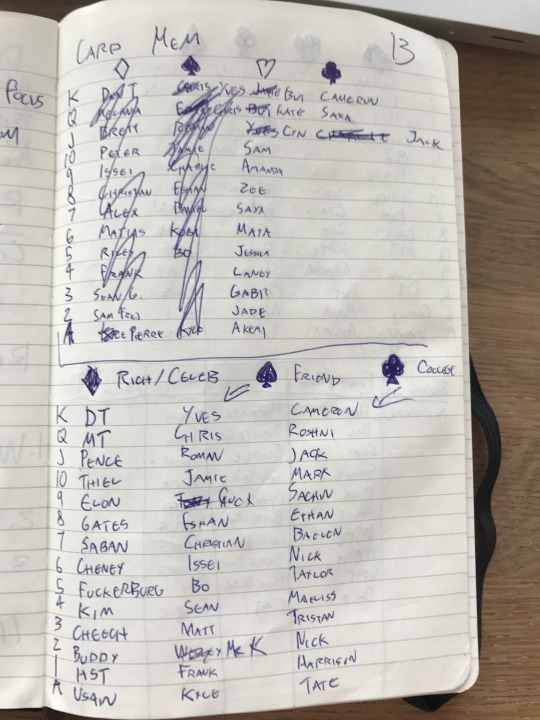 Focus
CARD MEM 13
♢ ♠ ♡ ♣
K DT YVES BUI CAMERON
Q CHRIS KATE SAYA
J BRETT ROMAN CYN JACK
10 PETER JAMIE SAM
9 ISSEI CHARLIE AMANDA
8 CHRISTIAN ESHAN ZOE
7 ALEX DANIEL SAYA
6 MATIAS KOBE MAYA
5 RILEY BO JESSICA
4 FRANK LANEY
3 SEAN G. GABBY
2 SAM FRED JADE
A PIERRE KYLE AKEMI
♦ RICH/CELEB ♠ FRIEND ♣ COLLEGE
K DT YVES CAMERON
Q MT CHRIS ROSHNI
J PENCE ROMAN JACK
10 THIEL JAMIE MARK
9 ELON SACHIN
8 GATES ESHAN ETHAN
7 SABAN CHRISTIAN BAELEN
6 CHENEY ISSEI NICK
5 FUCKERBURG BO TAYLOR
4 KIM SEAN MAELISS
3 CHEECH MATT TRISTAN
2 BUDDY MR K NICK
1 HST FRANK HARRISON
A USAIN KYLE TATE